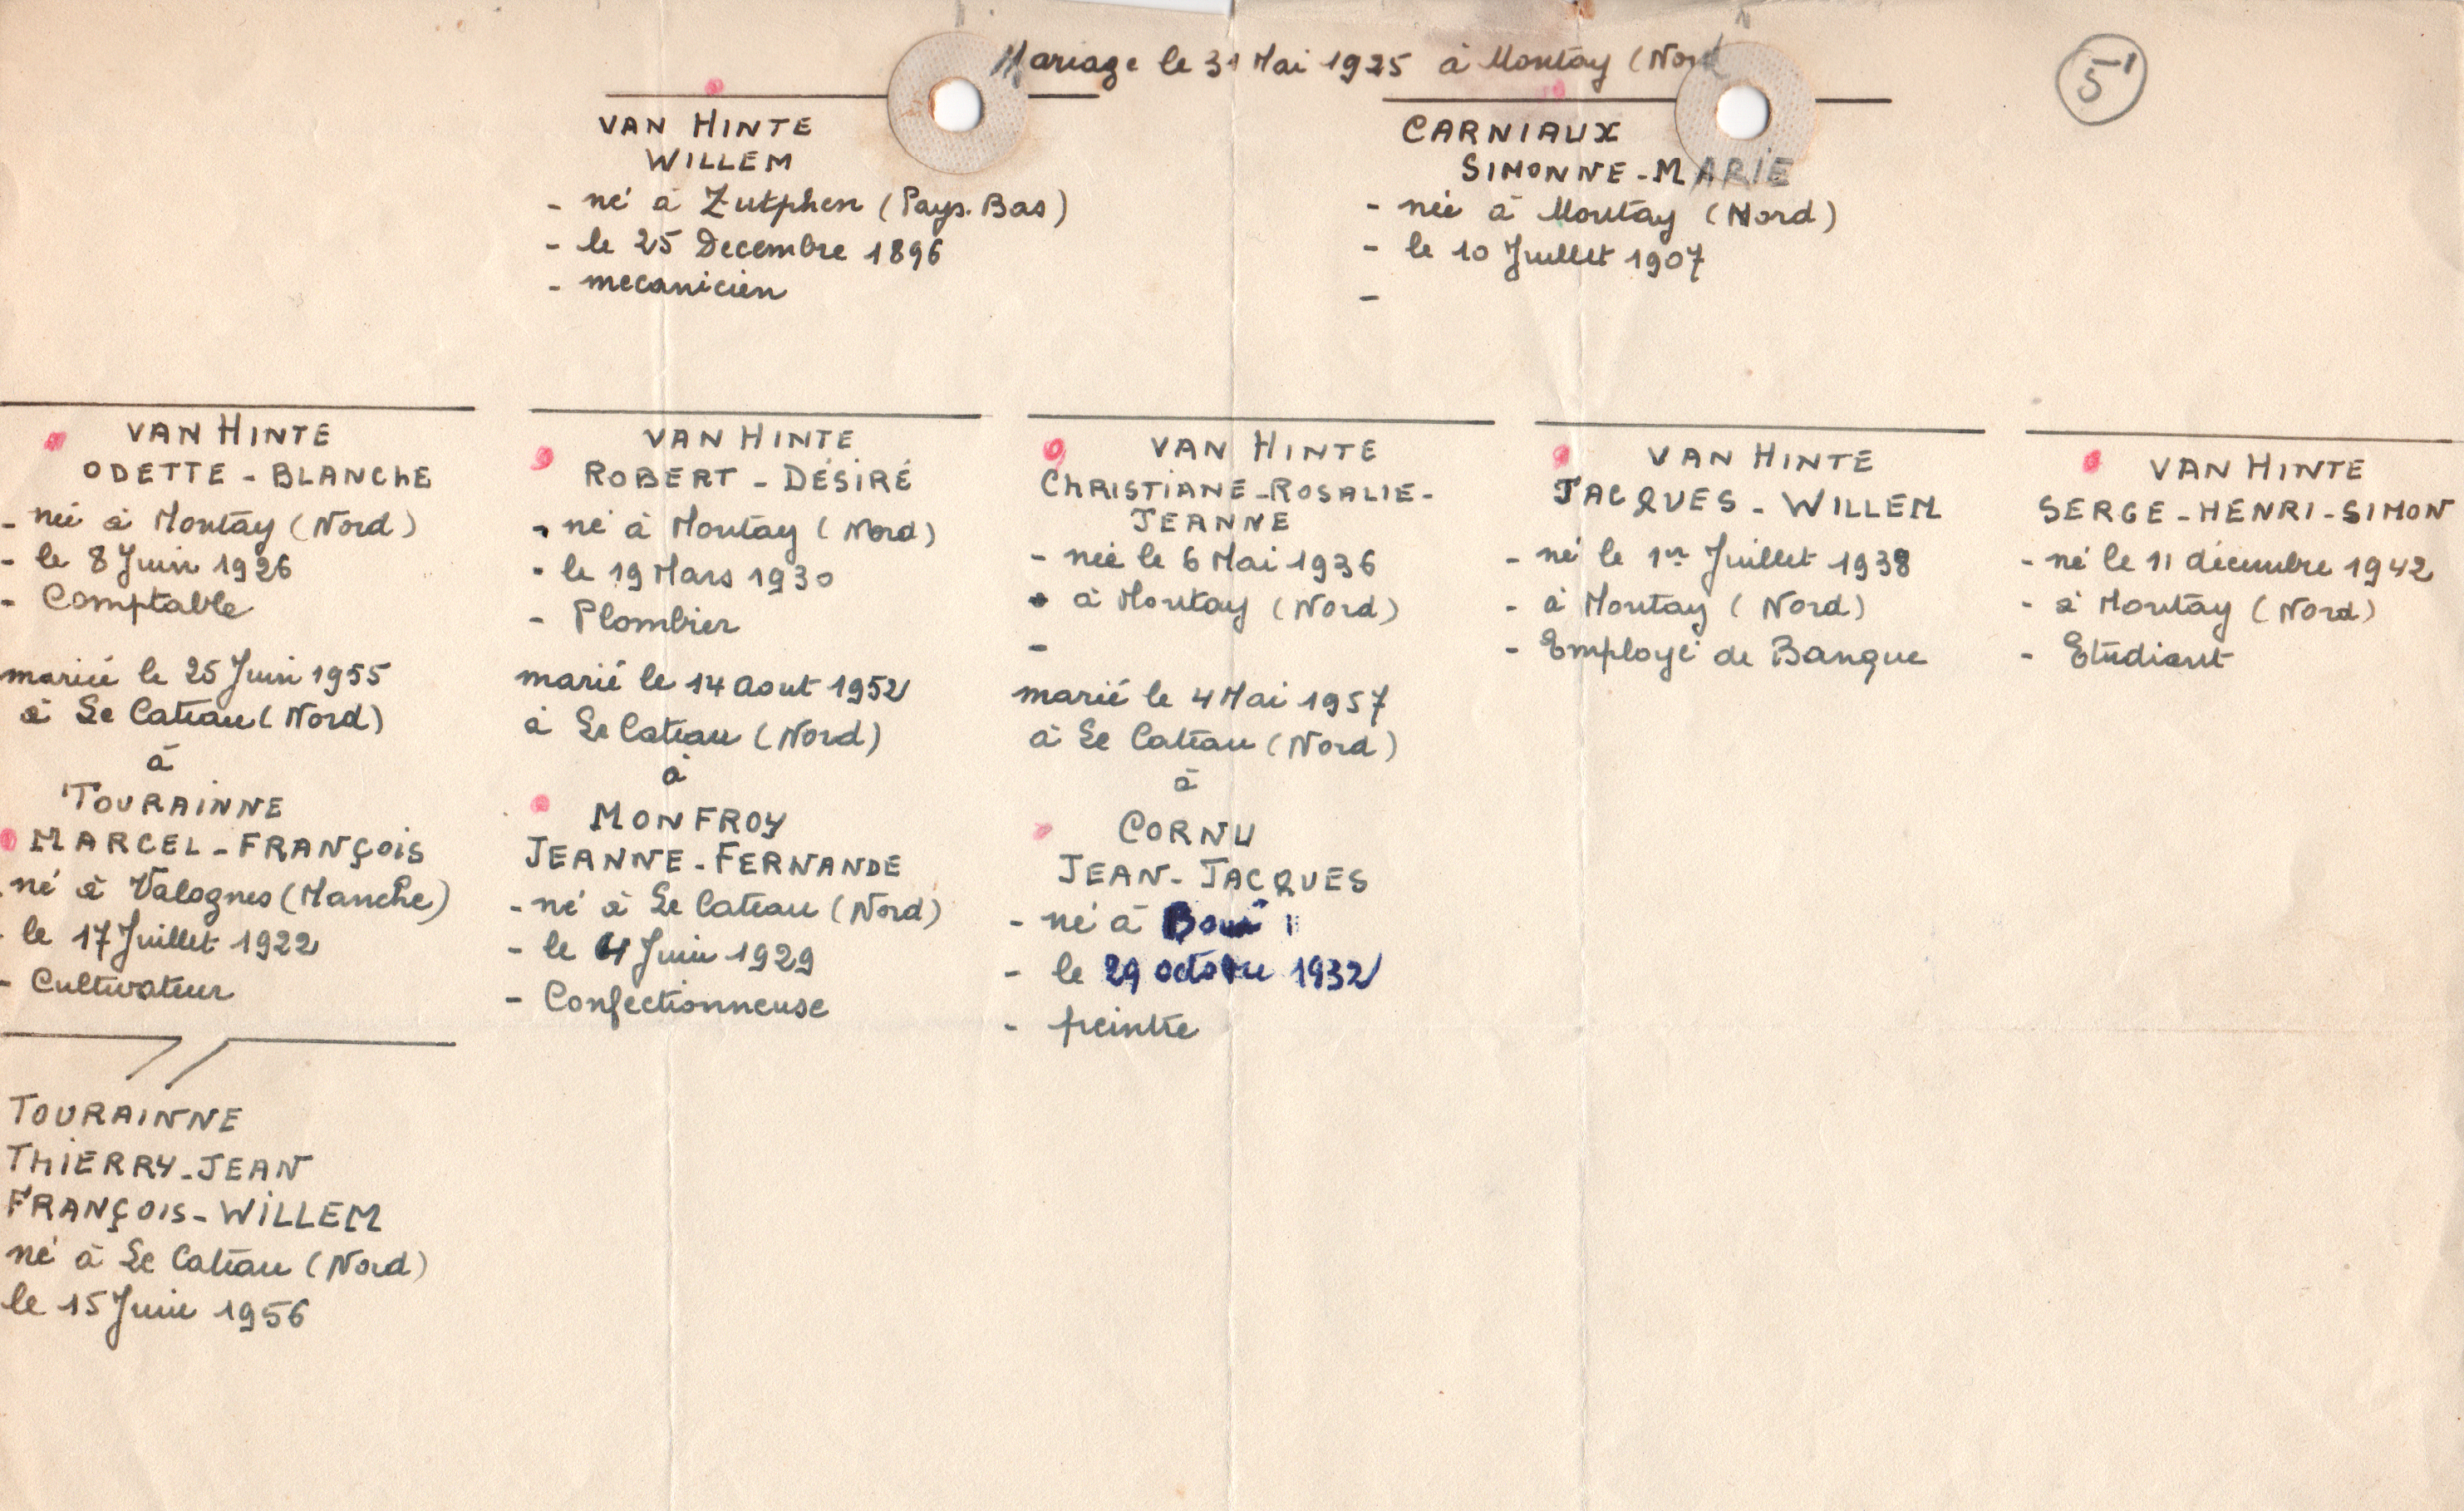 Mariage le 31 Mai 1925 à Montay (Nord
5'
VAN HINTE
WILLEM
- né à Zutphen (Pays.Bas)
- le 25 Decembre 1896
- mecanicien
CARNIAUX
SIMONNE-MARIE
- née à Montay (Nord)
- le 10 Juillet 1907
-
VAN HINTE
ODETTE-BLANCHE
- née à Montay (Nord)
- le 8 Juin 1926
- Comptable
mariée le 25 Juin 1955
à Le Cateau (Nord)
à
TOURAINNE
MARCEL-FRANÇOIS
- né à Valognes (Manche)
- le 17 Juillet 1922
- Cultivateur
TOURAINNE
THIERRY-JEAN
FRANÇOIS-WILLEM
né à Le Cateau (Nord)
le 15 Juin 1956
VAN HINTE
ROBERT-DÉSIRÉ
- né à Montay (Nord)
- le 19 Mars 1930
- Plombier
marié le 14 Aout 1952
à Le Cateau (Nord)
à
MONFROY
JEANNE-FERNANDE
- né à Le Cateau (Nord)
- le 4 Juin 1929
- Confectionneuse
VAN HINTE
CHRISTIANE-ROSALIE-
JEANNE
- née le 6 Mai 1936
- à Montay (Nord)
-
marié le 4 Mai 1957
à Le Cateau (Nord)
à
CORNU
JEAN-JACQUES
- né à
- le 29 octobre 1932
- peintre
VAN HINTE
JACQUES-WILLEM
- né le 1er Juillet 1938
- à Montay (Nord)
- Employé de Banque
VAN HINTE
SERGE-HENRI-SIMON
- né le 11 décembre 1942
- à Montay (Nord)
- Etudiant